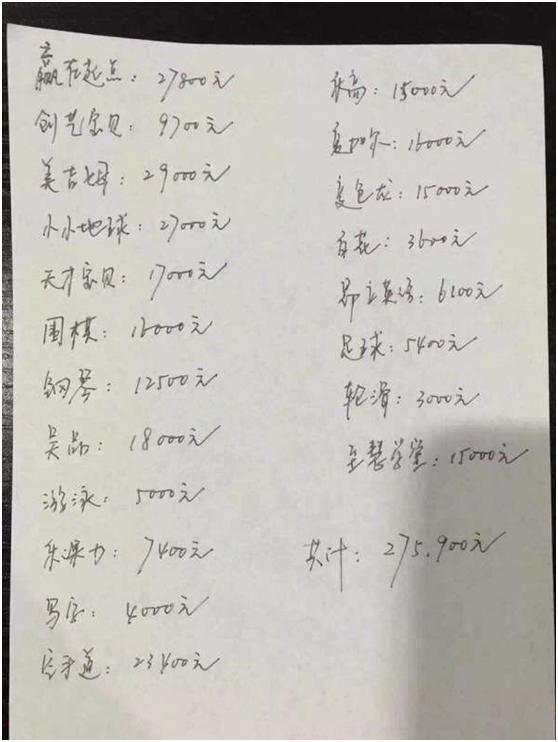 赢在起点：27800元
创艺宝贝：9700元
美吉姆：29000元
小小地球：27000元
天才宝贝：17000元
围棋：16000元
钢琴：12500元
昊晶：18000元
游泳：5000元
乐课力：7400元
写字：4000元
空手道：23400元
乐高：15000元
爱加尔：16000元
变色龙：15000元
百花：3600元
昂立英语：6100元
足球：5400元
轮滑：3000元
至慧学堂：15000元
共计：275.900元